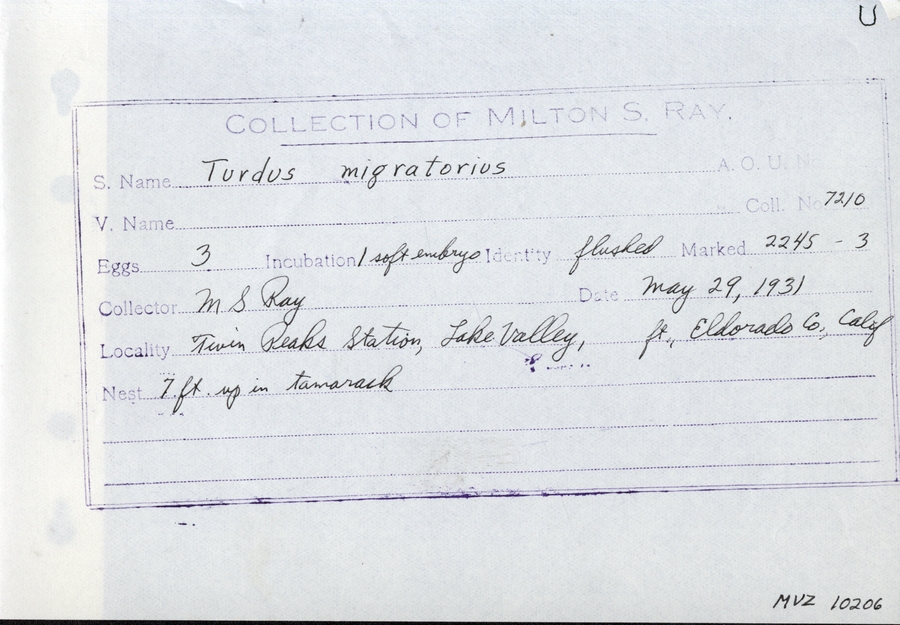 U
COLLECTION OF MILTON S. RAY.
S. Name Turdus migratorius A. O. U. N
V. Name Coll. No 7210
Eggs 3 Incubation 1 soft embryo Identity flushed Marked 2245 - 3
Collector M S Ray Date May 29, 1931
Locality Twin Peaks Station, Lake Valley, ft., Eldorado Co., Calif
Nest 7 ft. up in tamarack
MVZ 10206